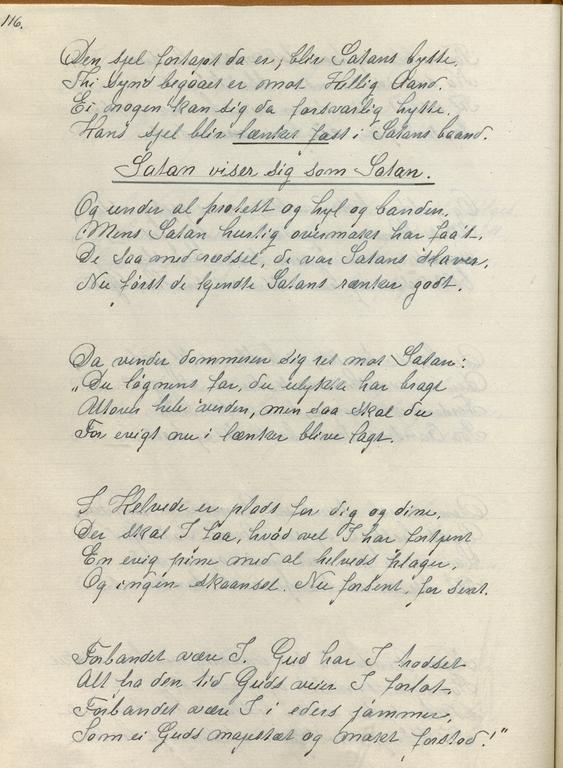 116.
Den sjel fortapt da er, blir Satans bytte.
Thi synd begaaet er mot Hellig Aand.
Ei nogen kan sig da forsvarlig hytte.
Hans sjel blir lænket fast i Satans baand.
Satan viser sig som Satan.
Og under al protest og hyl og banden,
Mens Satan hurtig overmakt har faa't.
De saa med rædsel, de var Satans slaver,
Nu først de kjendte Satans rænker godt.
Da vender dommeren sig ret mot Satan:
"Du løgnens far, du ulykke har bragt
Utover hele verden, men saa skal du
For evigt nu i lænker blive lagt.
I Helvede er plads for dig og dine,
Der skal I faa, hvad vel I har fortjent
En evig pine med al helveds plager,
Og ingen skaansel. Nu forsent, for sent.
Forbandet være I. Gud har I trodset
Alt fra den tid Guds veier I forlot,
Forbandet være I i eders jammer,
Som ei Guds majestæt og makt forstod!"